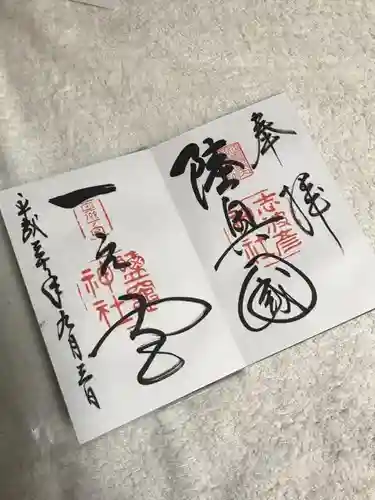 奉拝
陸奥国
志波彦
神社
一之宮
鹽竈
神社
平成三十年九月三日